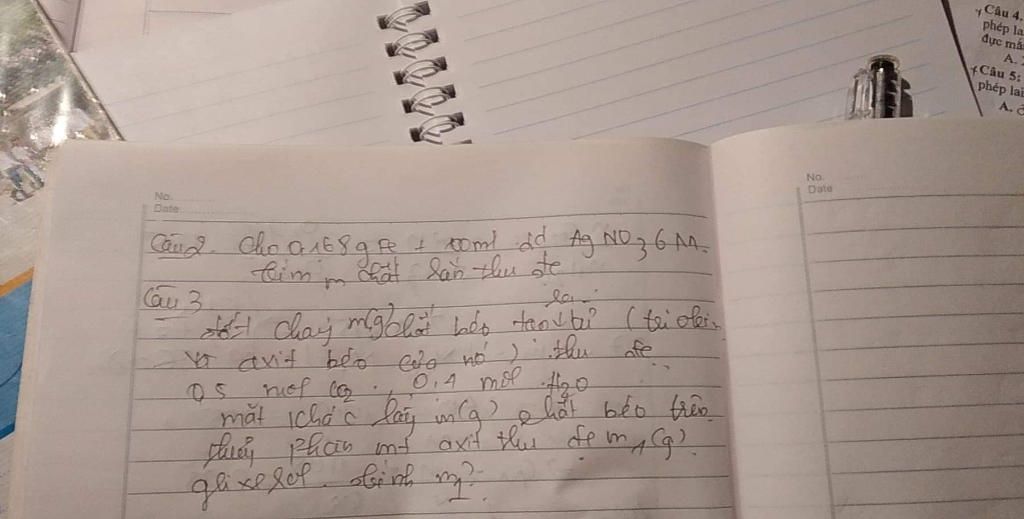 Câu 4.
phép la
đực mắ
A.
Câu 5:
phép lai
A.
No.
Date
No.
Date
Câu 2. Cho 0,168g Fe + 100ml dd AgNO3 6M.
tìm m chất rắn thu đc
Câu 3
đốt cháy m(g) chất béo tạo ra từ (tri olein
và axit béo của nó) thu đc
0,5 mol CO2, 0,4 mol H2O
mặt khác lấy m(g) chất béo trên
thuỷ phân mt axit thu đc m1(g)
glixerol. tính m1?